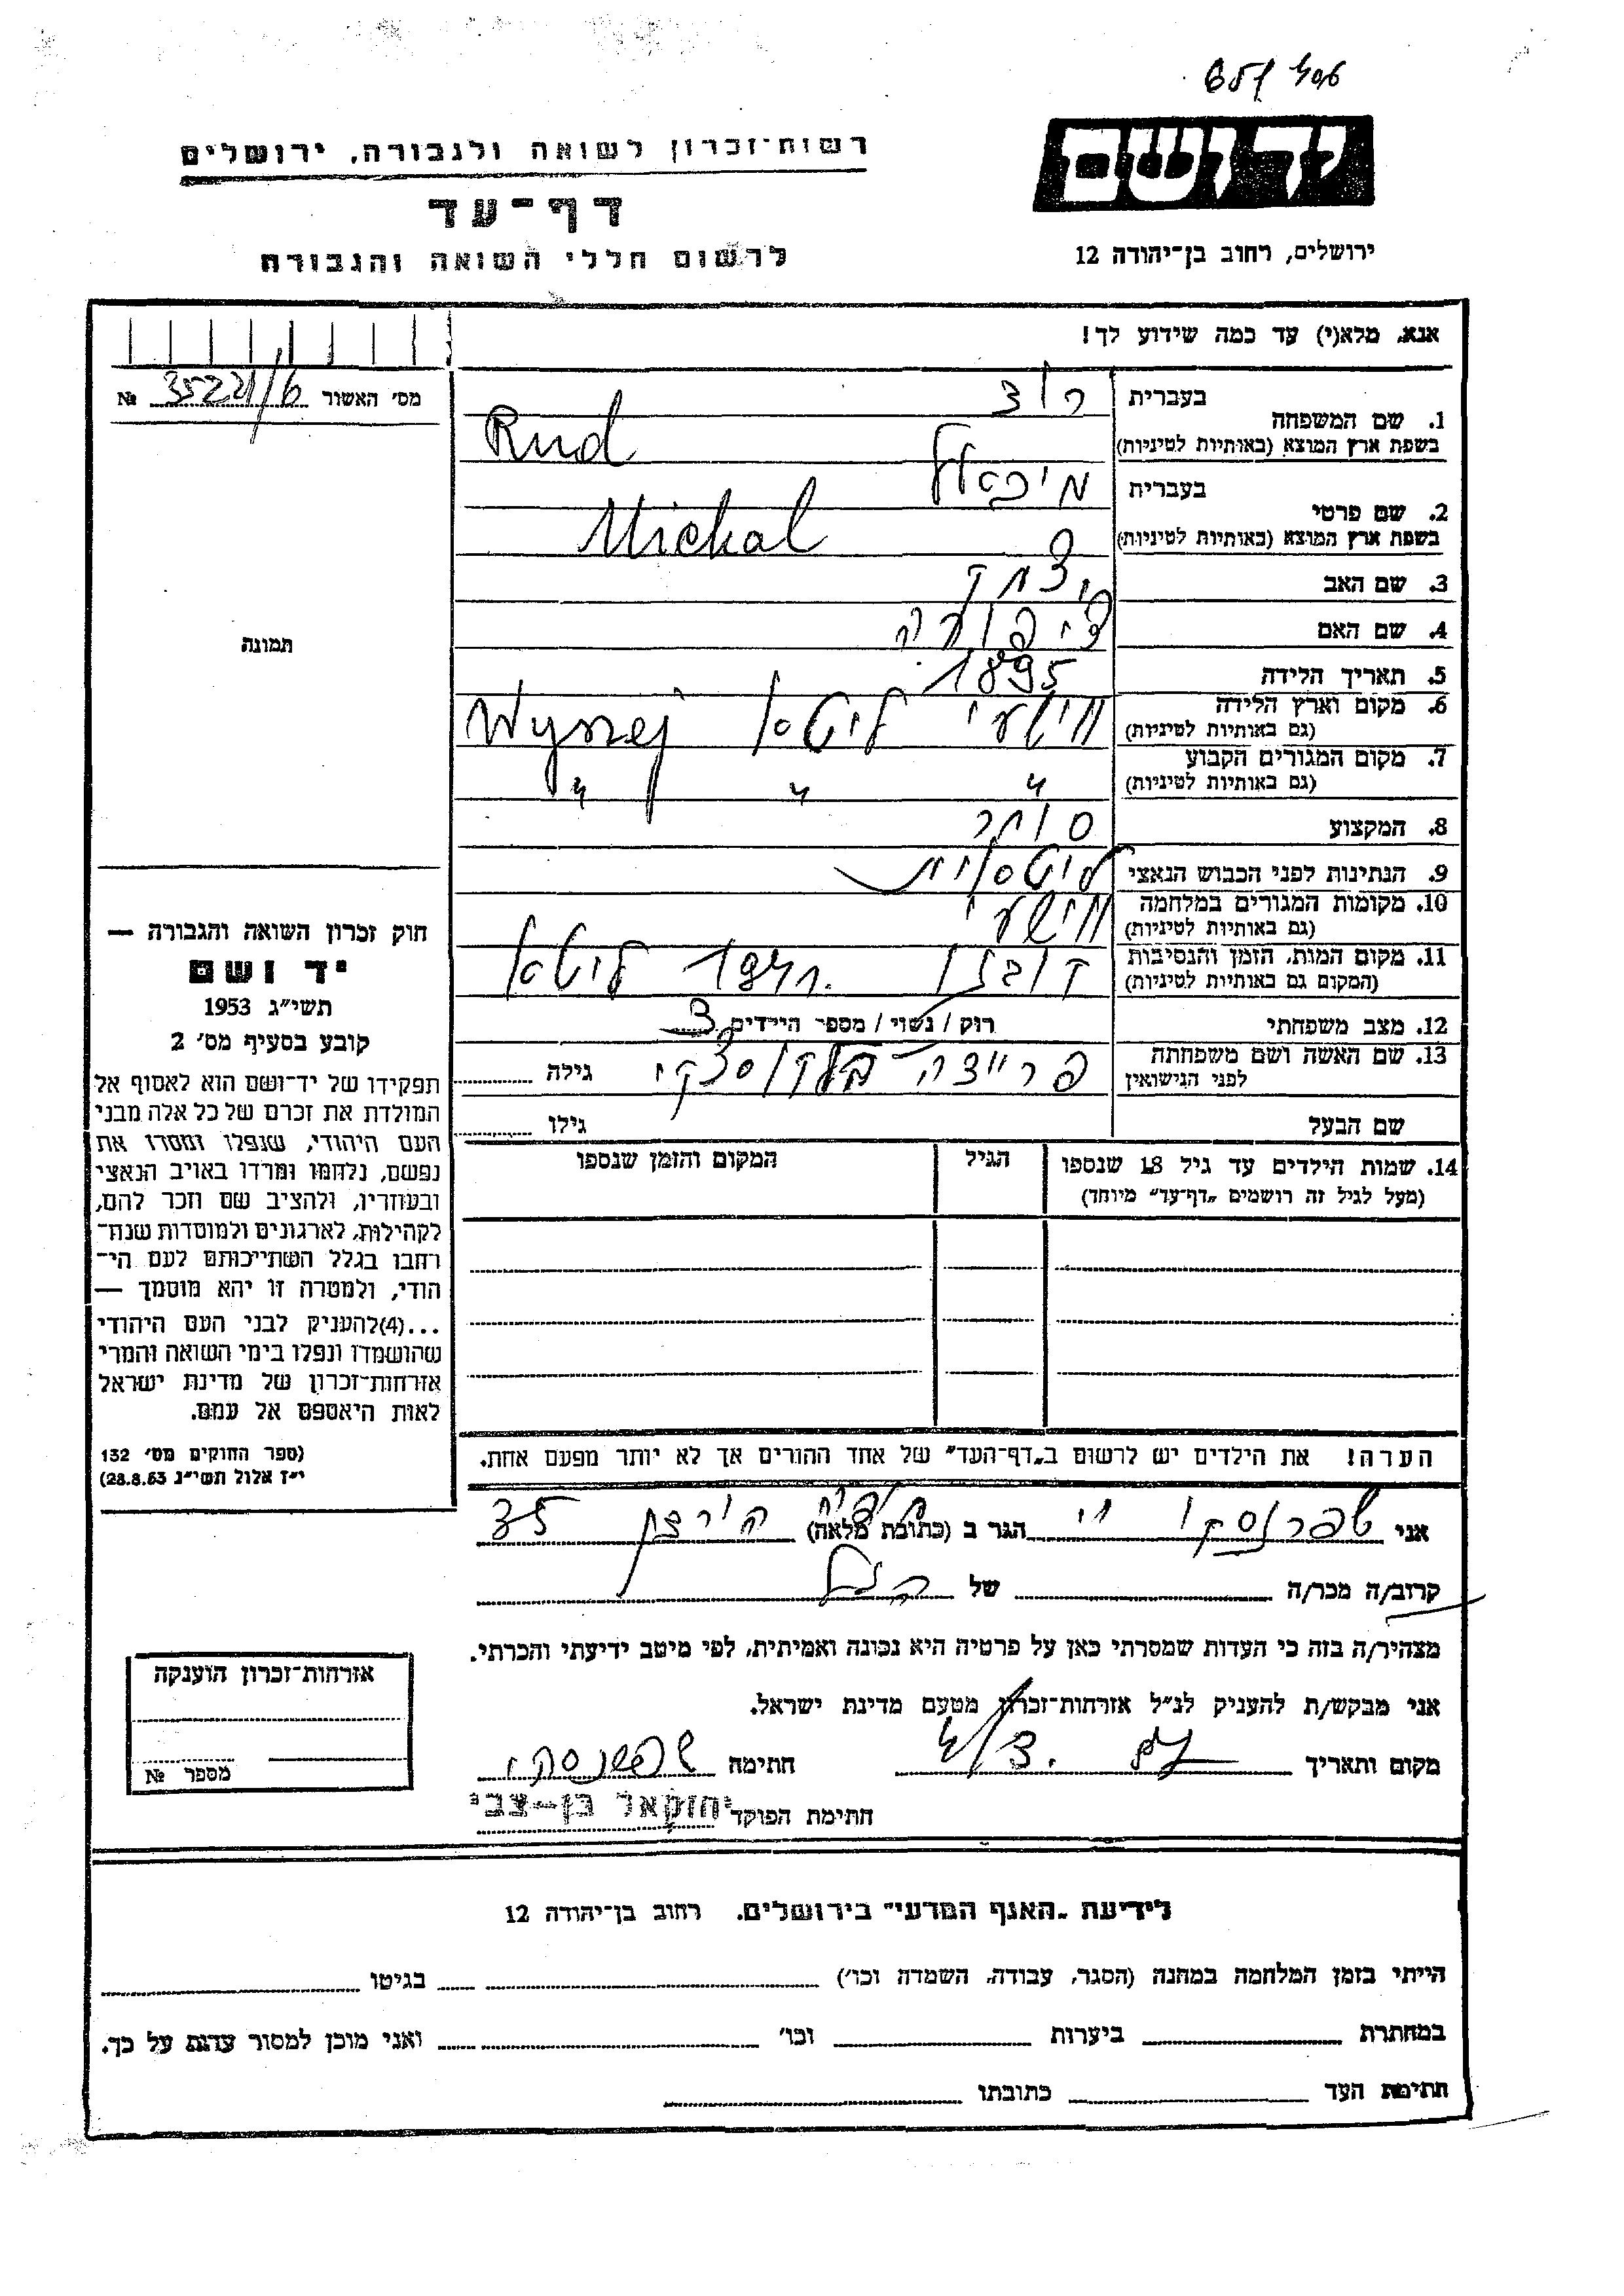 רשות־זכרון לשואה ולגבורה, ירושלים
דף־עד
לרשום חללי השואה והגבורה
יד ושם
ירושלים, רחוב בן־יהודה 12
אנא, מלא(י) עד כמה שידוע לך!
מס׳ האשור 35221/6 №
תמונה
1. שם המשפחה
בעברית
רוד
בשפת ארץ המוצא (באותיות לטיניות) Rud
2. שם פרטי
בעברית מיכאל
בשפת ארץ המוצא (באותיות לטיניות) Michal
3. שם האב יצחק
4. שם האם ציפורה
5. תאריך הלידה 1895
6. מקום וארץ הלידה
(גם באותיות לטיניות) ליטא
7. מקום המגורים הקבוע
(גם באותיות לטיניות) " " "
8. המקצוע סוחר
9. הנתינות לפני הכבוש הנאצי ליטאית
10. מקומות המגורים במלחמה
(גם באותיות לטיניות)
11. מקום המות, הזמן והנסיבות
(המקום גם באותיות לטיניות) 1941 ליטא
12. מצב משפחתי רוק / נשוי / מספר הילדים 3
13. שם האשה ושם משפחתה
לפני הנישואין גילה
שם הבעל גילו
14. שמות הילדים עד גיל 18 שנספו
(מעל לגיל זה רושמים „דף־עד״ מיוחד)
הגיל
המקום והזמן שנספו
הערה! את הילדים יש לרשום ב„דף־העד״ של אחד ההורים אך לא יותר מפעם אחת.
חוק זכרון השואה והגבורה —
יד ושם
תשי״ג 1953
קובע בסעיף מס׳ 2
תפקידו של יד־ושם הוא לאסוף אל
המולדת את זכרם של כל אלה מבני
העם היהודי, שנפלו ומסרו את
נפשם, נלחמו ומרדו באויב הנאצי
ובעוזריו, ולהציב שם וזכר להם,
לקהילות, לארגונים ולמוסדות שנח־
רבו בגלל השתייכותם לעם הי־
הודי, ולמטרה זו יהא מוסמך —
...(4)להעניק לבני העם היהודי
שהושמדו ונפלו בימי השואה והמרי
אזרחות־זכרון של מדינת ישראל
לאות היאספם אל עמם.
(ספר החוקים מס׳ 132
י״ז אלול תשי״ג 28.8.53)
אני הגר ב (כתובת מלאה)
קרוב/ה מכר/ה של
מצהיר/ה בזה כי העדות שמסרתי כאן על פרטיה היא נכונה ואמיתית, לפי מיטב ידיעתי והכרתי.
אני מבקש/ת להעניק לנ״ל אזרחות־זכרון מטעם מדינת ישראל.
מקום ותאריך חתימה
חתימת הפוקד יחזקאל בן־צבי
אזרחות־זכרון הוענקה
מספר №
לידיעת „האגף המדעי״ בירושלים, רחוב בן־יהודה 12
הייתי בזמן המלחמה במחנה (הסגר, עבודה, השמדה וכו׳) בגיטו
במחתרת ביערות וכו׳ ואני מוכן למסור עדות על כך.
חתימת העד כתובתו